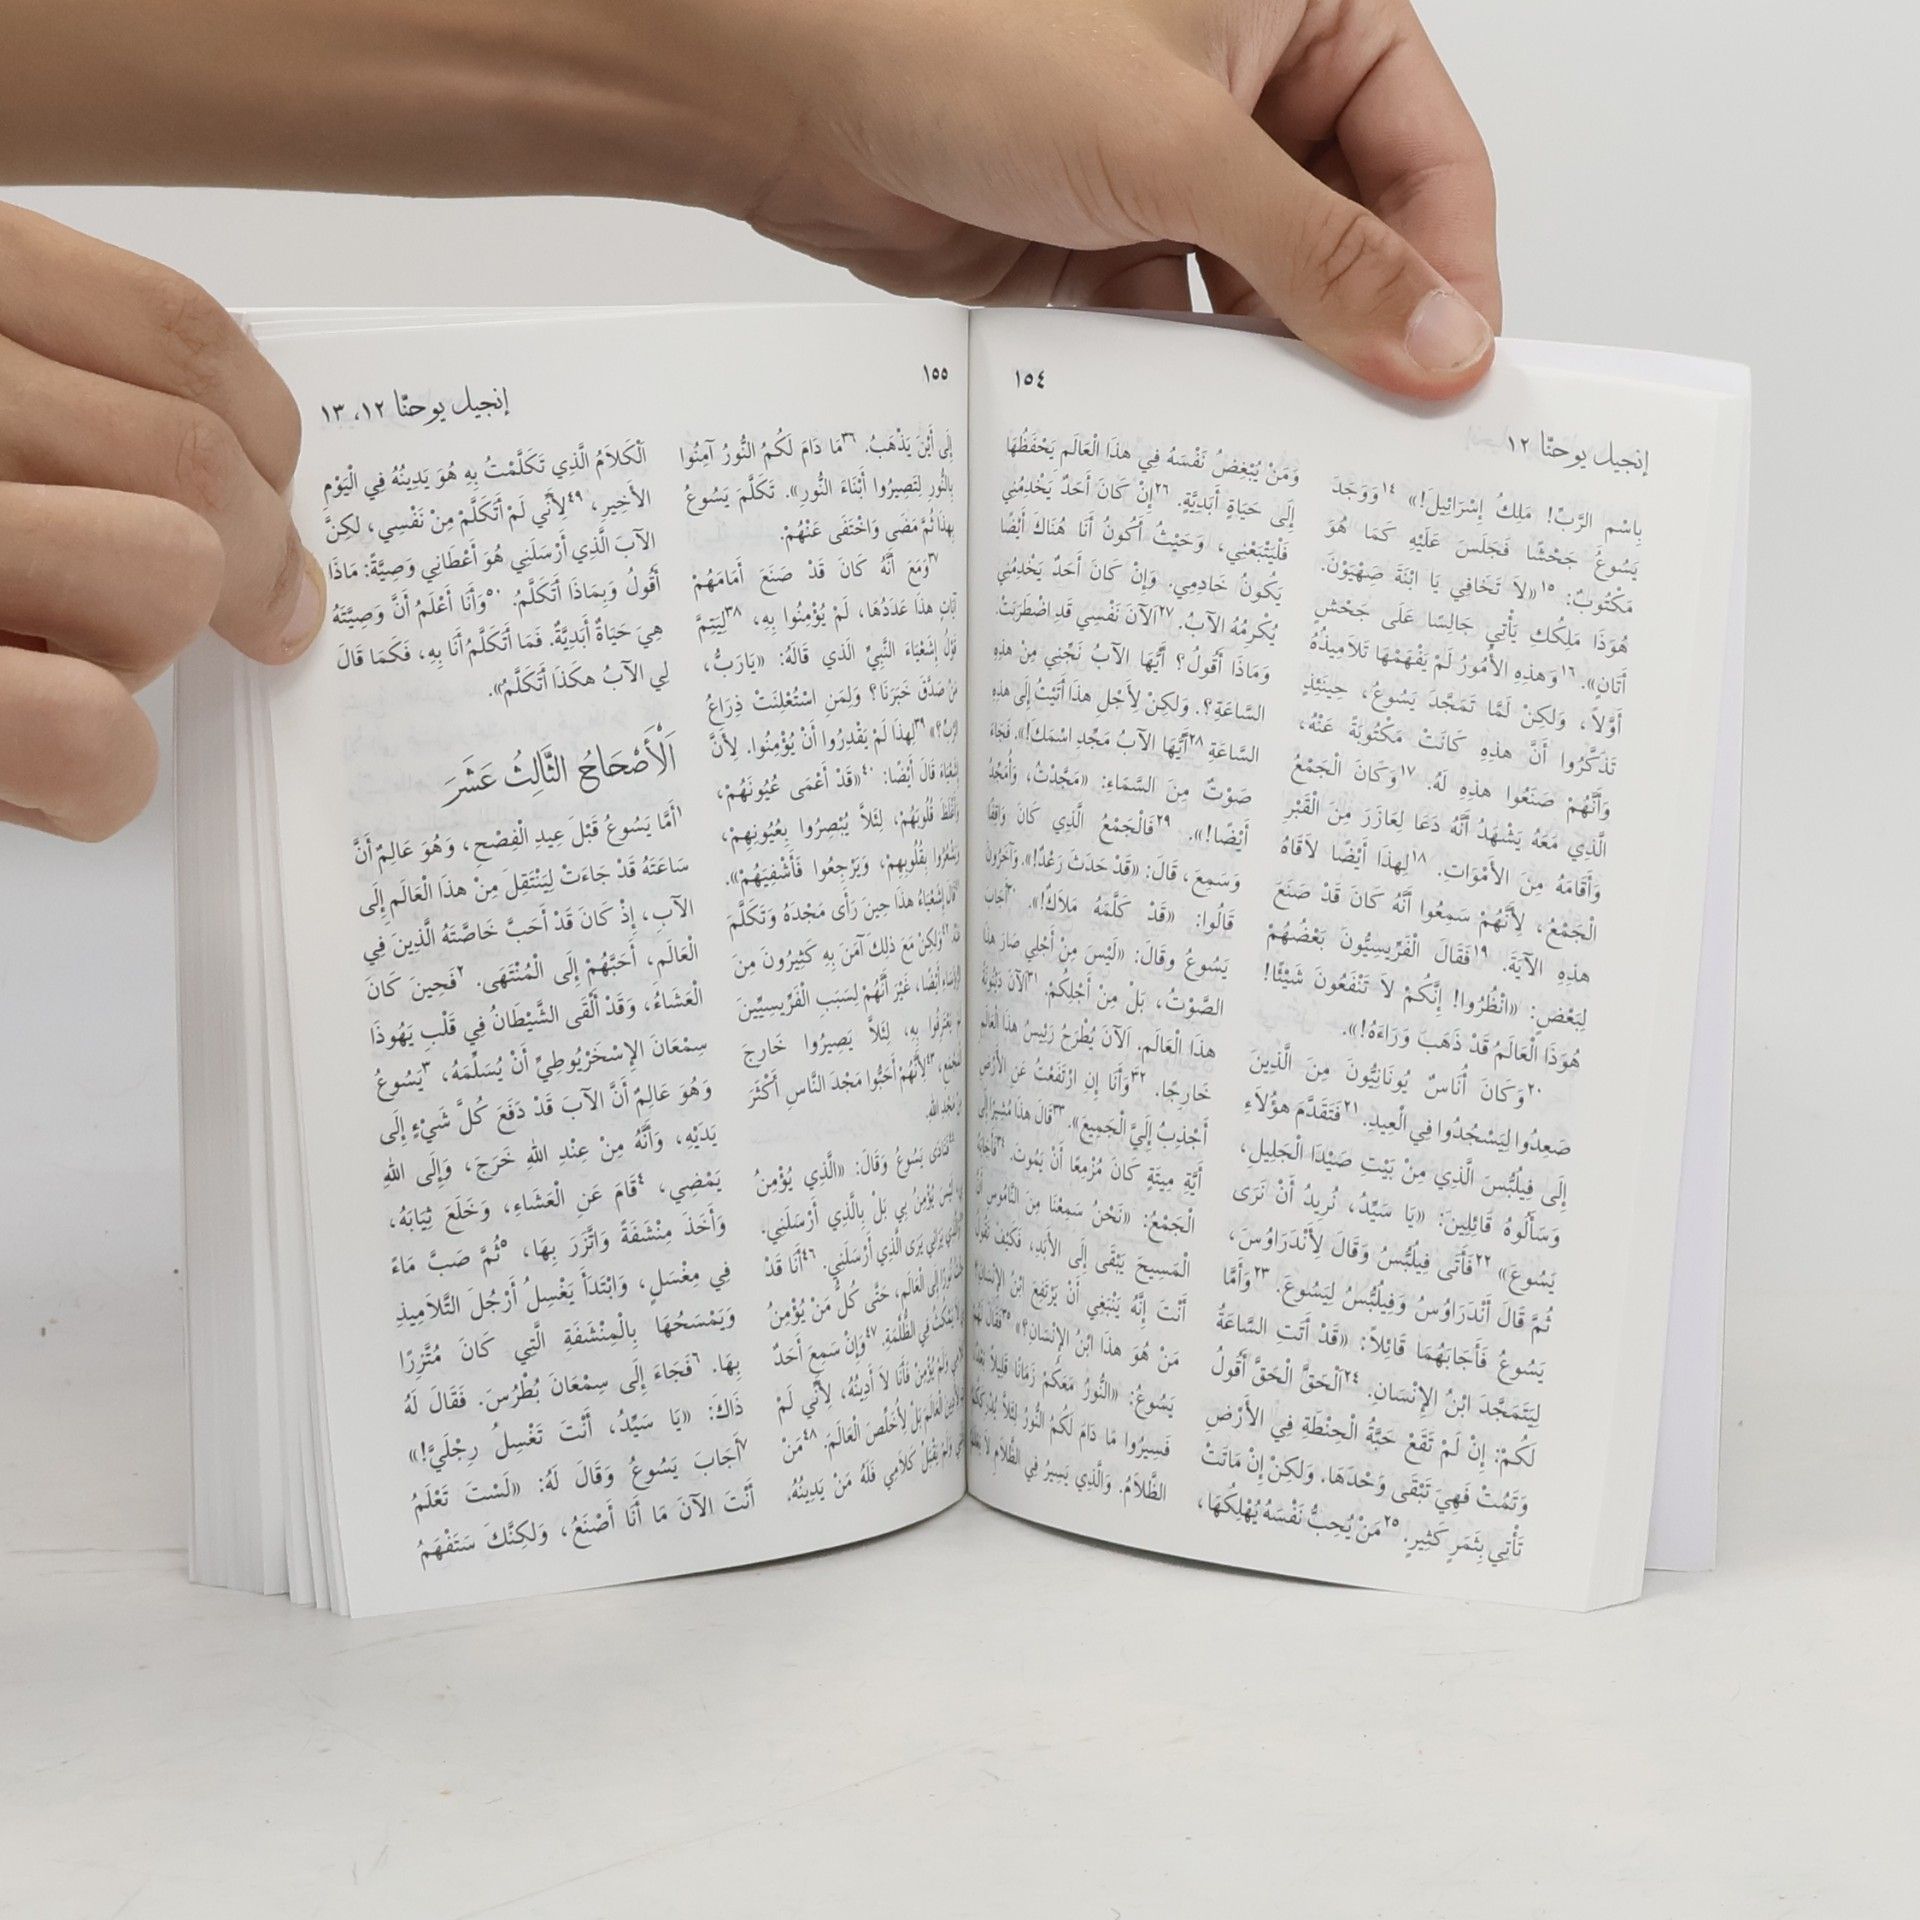 ١٥٤
إنجيل يوحنّا ١٢
بِاسْمِ الرَّبِّ! مَلِكُ إِسْرَائِيلَ!» ١٤وَوَجَدَ
يَسُوعُ جَحْشًا فَجَلَسَ عَلَيْهِ كَمَا هُوَ
مَكْتُوبٌ: ١٥«لاَ تَخَافِي يَا ابْنَةَ صَهْيَوْنَ.
هُوَذَا مَلِكُكِ يَأْتِي جَالِسًا عَلَى جَحْشٍ
أَتَانٍ». ١٦وَهذِهِ الأُمُورُ لَمْ يَفْهَمْهَا تَلاَمِيذُهُ
أَوَّلاً، وَلكِنْ لَمَّا تَمَجَّدَ يَسُوعُ، حِينَئِذٍ
تَذَكَّرُوا أَنَّ هذِهِ كَانَتْ مَكْتُوبَةً عَنْهُ،
وَأَنَّهُمْ صَنَعُوا هذِهِ لَهُ. ١٧وَكَانَ الْجَمْعُ
الَّذِي مَعَهُ يَشْهَدُ أَنَّهُ دَعَا لِعَازَرَ مِنَ الْقَبْرِ
وَأَقَامَهُ مِنَ الأَمْوَاتِ. ١٨لِهذَا أَيْضًا لاَقَاهُ
الْجَمْعُ، لأَنَّهُمْ سَمِعُوا أَنَّهُ كَانَ قَدْ صَنَعَ
هذِهِ الآيَةَ. ١٩فَقَالَ الْفَرِّيسِيُّونَ بَعْضُهُمْ
لِبَعْضٍ: «انْظُرُوا! إِنَّكُمْ لاَ تَنْفَعُونَ شَيْئًا!
هُوَذَا الْعَالَمُ قَدْ ذَهَبَ وَرَاءَهُ!».
٢٠وَكَانَ أُنَاسٌ يُونَانِيُّونَ مِنَ الَّذِينَ
صَعِدُوا لِيَسْجُدُوا فِي الْعِيدِ. ٢١فَتَقَدَّمَ هؤُلاَءِ
إِلَى فِيلُبُّسَ الَّذِي مِنْ بَيْتِ صَيْدَا الْجَلِيلِ،
وَسَأَلُوهُ قَائِلِينَ: «يَا سَيِّدُ، نُرِيدُ أَنْ نَرَى
يَسُوعَ» ٢٢فَأَتَى فِيلُبُّسُ وَقَالَ لأَنْدَرَاوُسَ،
ثُمَّ قَالَ أَنْدَرَاوُسُ وَفِيلُبُّسُ لِيَسُوعَ. ٢٣وَأَمَّا
يَسُوعُ فَأَجَابَهُمَا قَائِلاً: «قَدْ أَتَتِ السَّاعَةُ
لِيَتَمَجَّدَ ابْنُ الإِنْسَانِ. ٢٤اَلْحَقَّ الْحَقَّ أَقُولُ
لَكُمْ: إِنْ لَمْ تَقَعْ حَبَّةُ الْحِنْطَةِ فِي الأَرْضِ
وَتَمُتْ فَهِيَ تَبْقَى وَحْدَهَا. وَلكِنْ إِنْ مَاتَتْ
تَأْتِي بِثَمَرٍ كَثِيرٍ. ٢٥مَنْ يُحِبُّ نَفْسَهُ يُهْلِكُهَا،
وَمَنْ يُبْغِضُ نَفْسَهُ فِي هذَا الْعَالَمِ يَحْفَظُهَا
إِلَى حَيَاةٍ أَبَدِيَّةٍ. ٢٦إِنْ كَانَ أَحَدٌ يَخْدِمُنِي
فَلْيَتْبَعْنِي، وَحَيْثُ أَكُونُ أَنَا هُنَاكَ أَيْضًا
يَكُونُ خَادِمِي. وَإِنْ كَانَ أَحَدٌ يَخْدِمُنِي
يُكْرِمُهُ الآبُ. ٢٧اَلآنَ نَفْسِي قَدِ اضْطَرَبَتْ.
وَمَاذَا أَقُولُ؟ أَيُّهَا الآبُ نَجِّنِي مِنْ هذِهِ
السَّاعَةِ؟. وَلكِنْ لأَجْلِ هذَا أَتَيْتُ إِلَى هذِهِ
السَّاعَةِ ٢٨أَيُّهَا الآبُ مَجِّدِ اسْمَكَ!». فَجَاءَ
صَوْتٌ مِنَ السَّمَاءِ: «مَجَّدْتُ، وَأُمَجِّدُ
أَيْضًا!». ٢٩فَالْجَمْعُ الَّذِي كَانَ وَاقِفًا
وَسَمِعَ، قَالَ: «قَدْ حَدَثَ رَعْدٌ!». وَآخَرُونَ
قَالُوا: «قَدْ كَلَّمَهُ مَلاَكٌ!». ٣٠أَجَابَ
يَسُوعُ وَقَالَ: «لَيْسَ مِنْ أَجْلِي صَارَ هذَا
الصَّوْتُ، بَلْ مِنْ أَجْلِكُمْ. ٣١اَلآنَ دَيْنُونَةُ
هذَا الْعَالَمِ. اَلآنَ يُطْرَحُ رَئِيسُ هذَا الْعَالَمِ
خَارِجًا. ٣٢وَأَنَا إِنِ ارْتَفَعْتُ عَنِ الأَرْضِ
أَجْذِبُ إِلَيَّ الْجَمِيعَ». ٣٣قَالَ هذَا مُشِيرًا إِلَى
أَيَّةِ مِيتَةٍ كَانَ مُزْمِعًا أَنْ يَمُوتَ. ٣٤فَأَجَابَهُ
الْجَمْعُ: «نَحْنُ سَمِعْنَا مِنَ النَّامُوسِ أَنَّ
الْمَسِيحَ يَبْقَى إِلَى الأَبَدِ، فَكَيْفَ تَقُولُ
أَنْتَ إِنَّهُ يَنْبَغِي أَنْ يَرْتَفِعَ ابْنُ الإِنْسَانِ؟
مَنْ هُوَ هذَا ابْنُ الإِنْسَانِ؟» ٣٥فَقَالَ لَهُمْ
يَسُوعُ: «النُّورُ مَعَكُمْ زَمَانًا قَلِيلاً بَعْدُ،
فَسِيرُوا مَا دَامَ لَكُمُ النُّورُ لِئَلاَّ يُدْرِكَكُمُ
الظَّلاَمُ. وَالَّذِي يَسِيرُ فِي الظَّلاَمِ لاَ يَعْلَمُ
١٥٥
إنجيل يوحنّا ١٢، ١٣
إِلَى أَيْنَ يَذْهَبُ. ٣٦مَا دَامَ لَكُمُ النُّورُ آمِنُوا
بِالنُّورِ لِتَصِيرُوا أَبْنَاءَ النُّورِ». تَكَلَّمَ يَسُوعُ
بِهذَا ثُمَّ مَضَى وَاخْتَفَى عَنْهُمْ.
٣٧وَمَعَ أَنَّهُ كَانَ قَدْ صَنَعَ أَمَامَهُمْ
آيَاتٍ هذَا عَدَدُهَا، لَمْ يُؤْمِنُوا بِهِ، ٣٨لِيَتِمَّ
قَوْلُ إِشَعْيَاءَ النَّبِيِّ الَّذِي قَالَهُ: «يَارَبُّ،
مَنْ صَدَّقَ خَبَرَنَا؟ وَلِمَنِ اسْتُعْلِنَتْ ذِرَاعُ
الرَّبِّ؟» ٣٩لِهذَا لَمْ يَقْدِرُوا أَنْ يُؤْمِنُوا. لأَنَّ
إِشَعْيَاءَ قَالَ أَيْضًا: ٤٠«قَدْ أَعْمَى عُيُونَهُمْ،
وَأَغْلَظَ قُلُوبَهُمْ، لِئَلاَّ يُبْصِرُوا بِعُيُونِهِمْ،
وَيَشْعُرُوا بِقُلُوبِهِمْ، وَيَرْجِعُوا فَأَشْفِيَهُمْ».
قَالَ إِشَعْيَاءُ هذَا حِينَ رَأَى مَجْدَهُ وَتَكَلَّمَ
عَنْهُ. ٤٢وَلكِنْ مَعَ ذلِكَ آمَنَ بِهِ كَثِيرُونَ مِنَ
الرُّؤَسَاءِ أَيْضًا، غَيْرَ أَنَّهُمْ لِسَبَبِ الْفَرِّيسِيِّينَ
لَمْ يَعْتَرِفُوا بِهِ، لِئَلاَّ يَصِيرُوا خَارِجَ
الْمَجْمَعِ، ٤٣لأَنَّهُمْ أَحَبُّوا مَجْدَ النَّاسِ أَكْثَرَ
مِنْ مَجْدِ اللهِ.
٤٤فَنَادَى يَسُوعُ وَقَالَ: «الَّذِي يُؤْمِنُ
لَيْسَ يُؤْمِنُ بِي بَلْ بِالَّذِي أَرْسَلَنِي.
وَالَّذِي يَرَانِي يَرَى الَّذِي أَرْسَلَنِي. ٤٦أَنَا قَدْ
جِئْتُ نُورًا إِلَى الْعَالَمِ، حَتَّى كُلُّ مَنْ يُؤْمِنُ
لاَ يَمْكُثُ فِي الظُّلْمَةِ. ٤٧وَإِنْ سَمِعَ أَحَدٌ
وَلَمْ يُؤْمِنْ فَأَنَا لاَ أَدِينُهُ، لأَنِّي لَمْ
الْعَالَمَ بَلْ لأُخَلِّصَ الْعَالَمَ. ٤٨مَنْ
وَلَمْ يَقْبَلْ كَلاَمِي فَلَهُ مَنْ يَدِينُهُ.
اَلْكَلاَمُ الَّذِي تَكَلَّمْتُ بِهِ هُوَ يَدِينُهُ فِي الْيَوْمِ
الأَخِيرِ، ٤٩لأَنِّي لَمْ أَتَكَلَّمْ مِنْ نَفْسِي، لكِنَّ
الآبَ الَّذِي أَرْسَلَنِي هُوَ أَعْطَانِي وَصِيَّةً: مَاذَا
أَقُولُ وَبِمَاذَا أَتَكَلَّمُ. ٥٠وَأَنَا أَعْلَمُ أَنَّ وَصِيَّتَهُ
هِيَ حَيَاةٌ أَبَدِيَّةٌ. فَمَا أَتَكَلَّمُ أَنَا بِهِ، فَكَمَا قَالَ
لِي الآبُ هكَذَا أَتَكَلَّمُ».
اَلْأَصْحَاحُ الثَّالِثُ عَشَرَ
١أَمَّا يَسُوعُ قَبْلَ عِيدِ الْفِصْحِ، وَهُوَ عَالِمٌ أَنَّ
سَاعَتَهُ قَدْ جَاءَتْ لِيَنْتَقِلَ مِنْ هذَا الْعَالَمِ إِلَى
الآبِ، إِذْ كَانَ قَدْ أَحَبَّ خَاصَّتَهُ الَّذِينَ فِي
الْعَالَمِ، أَحَبَّهُمْ إِلَى الْمُنْتَهَى. ٢فَحِينَ كَانَ
الْعَشَاءُ، وَقَدْ أَلْقَى الشَّيْطَانُ فِي قَلْبِ يَهُوذَا
سِمْعَانَ الإِسْخَرْيُوطِيِّ أَنْ يُسَلِّمَهُ، ٣يَسُوعُ
وَهُوَ عَالِمٌ أَنَّ الآبَ قَدْ دَفَعَ كُلَّ شَيْءٍ إِلَى
يَدَيْهِ، وَأَنَّهُ مِنْ عِنْدِ اللهِ خَرَجَ، وَإِلَى اللهِ
يَمْضِي، ٤قَامَ عَنِ الْعَشَاءِ، وَخَلَعَ ثِيَابَهُ،
وَأَخَذَ مِنْشَفَةً وَاتَّزَرَ بِهَا، ٥ثُمَّ صَبَّ مَاءً
فِي مِغْسَلٍ، وَابْتَدَأَ يَغْسِلُ أَرْجُلَ التَّلاَمِيذِ
وَيَمْسَحُهَا بِالْمِنْشَفَةِ الَّتِي كَانَ مُتَّزِرًا
بِهَا. ٦فَجَاءَ إِلَى سِمْعَانَ بُطْرُسَ. فَقَالَ لَهُ
ذَاكَ: «يَا سَيِّدُ، أَنْتَ تَغْسِلُ رِجْلَيَّ!»
٧أَجَابَ يَسُوعُ وَقَالَ لَهُ: «لَسْتَ تَعْلَمُ
أَنْتَ الآنَ مَا أَنَا أَصْنَعُ، وَلكِنَّكَ سَتَفْهَمُ